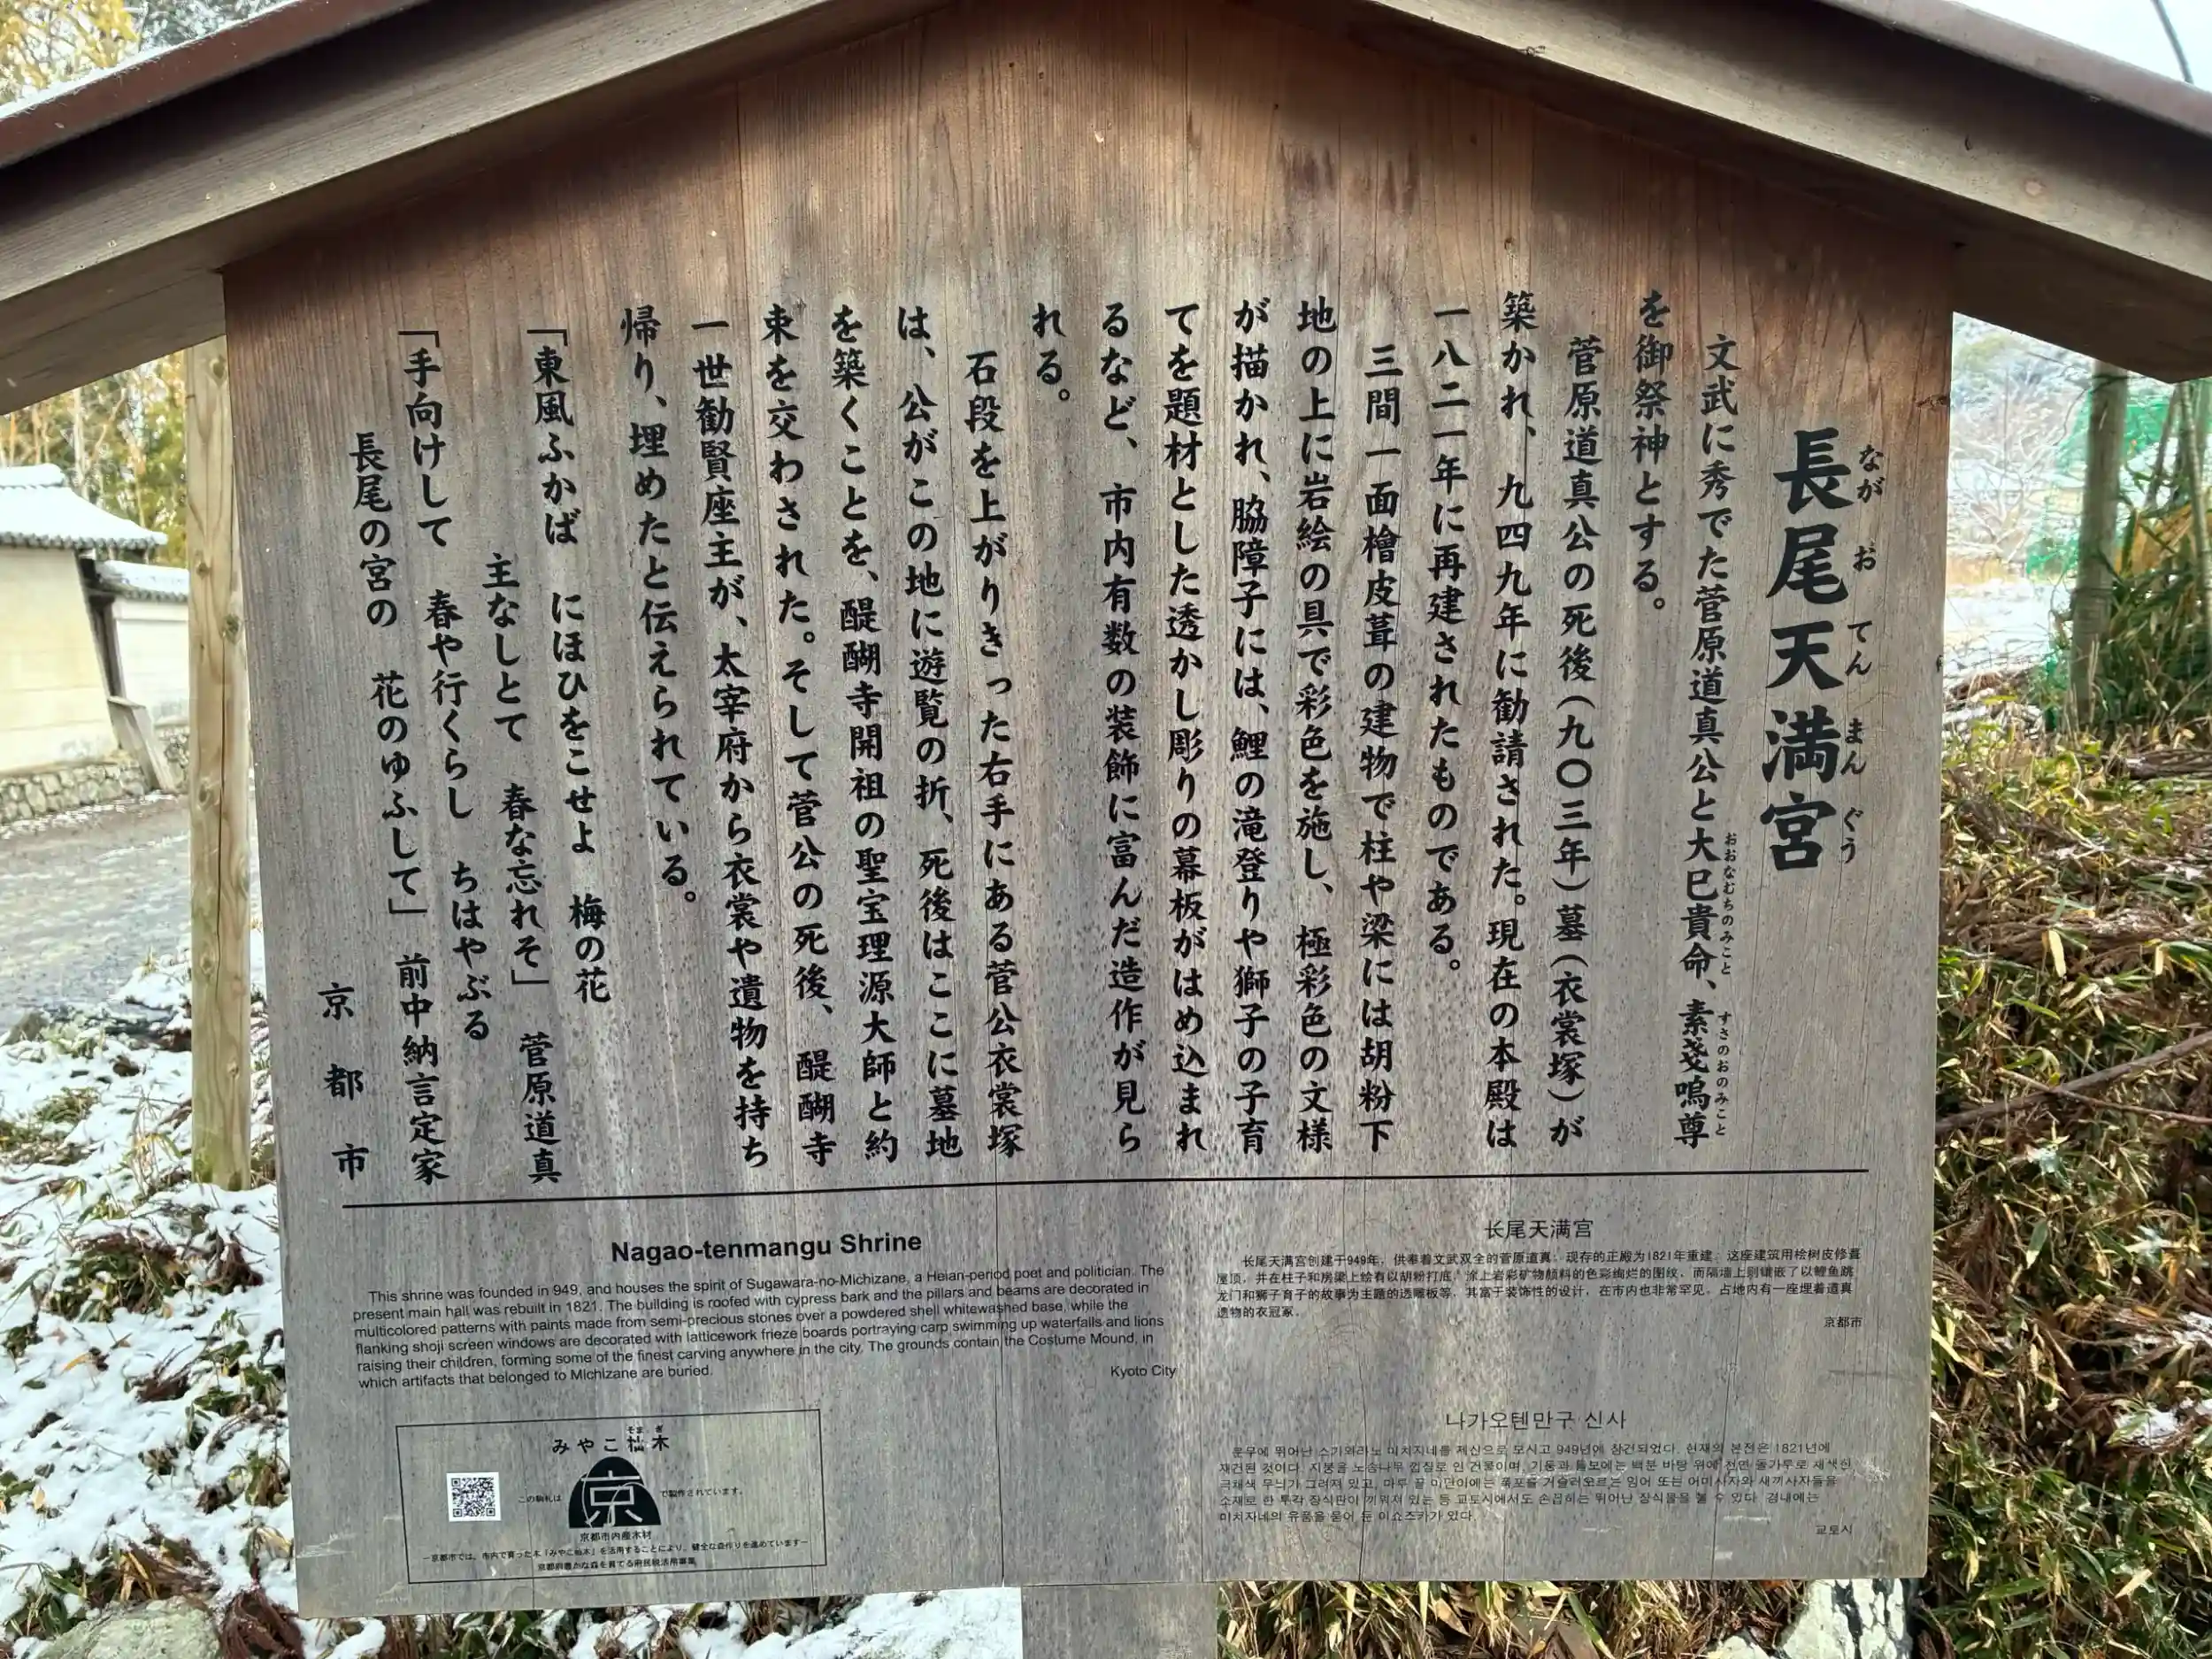 長尾天満宮
ながおてんまんぐう
文武に秀でた菅原道真公と大巳貴命、素戔嗚尊
おおなむちのみこと すさのおのみこと
を御祭神とする。
菅原道真公の死後(九〇三年)墓(衣裳塚)が
築かれ、九四九年に勧請された。現在の本殿は
一八二一年に再建されたものである。
三間一面檜皮葺の建物で柱や梁には胡粉下
地の上に岩絵の具で彩色を施し、極彩色の文様
が描かれ、脇障子には、鯉の滝登りや獅子の子育
てを題材とした透かし彫りの幕板がはめ込まれ
るなど、市内有数の装飾に富んだ造作が見ら
れる。
石段を上がりきった右手にある菅公衣裳塚
は、公がこの地に遊覧の折、死後はここに墓地
を築くことを、醍醐寺開祖の聖宝理源大師と約
束を交わされた。そして菅公の死後、醍醐寺
一世勧賢座主が、太宰府から衣裳や遺物を持ち
帰り、埋めたと伝えられている。
「東風ふかば にほひをこせよ 梅の花
主なしとて 春な忘れそ」 菅原道真
「手向けして 春や行くらし ちはやぶる
長尾の宮の 花のゆふして」 前中納言定家
京都市
Nagao-tenmangu Shrine
This shrine was founded in 949, and houses the spirit of Sugawara-no-Michizane, a Heian-period poet and politician. The
present main hall was rebuilt in 1821. The building is roofed with cypress bark and the pillars and beams are decorated in
multicolored patterns with paints made from semi-precious stones over a powdered shell whitewashed base, while the
flanking shoji screen windows are decorated with latticework frieze boards portraying carp swimming up waterfalls and lions
raising their children, forming some of the finest carving anywhere in the city. The grounds contain the Costume Mound, in
which artifacts that belonged to Michizane are buried.
Kyoto City
长尾天满宫
长尾天满宫创建于949年，供奉着文武双全的菅原道真。现存的正殿为1821年重建。这座建筑用桧树皮修葺
屋顶，并在柱子和房梁上绘有以胡粉打底，涂上岩彩矿物颜料的色彩绚烂的图纹，而隔墙上则镶嵌了以鲤鱼跳
龙门和狮子育子的故事为主题的透雕板等，其富于装饰性的设计，在市内也非常罕见。占地内有一座埋着道真
遗物的衣冠冢。
京都市
나가오텐만구 신사
문무에 뛰어난 스가와라노 미치자네를 제신으로 모시고 949년에 창건되었다. 현재의 본전은 1821년에
재건된 것이다. 지붕을 노송나무 껍질로 인 건물이며, 기둥과 들보에는 백분 바탕 위에 천연 돌가루로 채색한
극채색 무늬가 그려져 있고, 마루 끝 미닫이에는 폭포를 거슬러오르는 잉어 또는 어미사자와 새끼사자들을
소재로 한 투각 장식판이 끼워져 있는 등 교토시에서도 손꼽히는 뛰어난 장식물을 볼 수 있다. 경내에는
미치자네의 유품을 묻어 둔 이쇼즈카가 있다.
교토시
そまぎ
みやこ杣木
この駒札は 京 で製作されています。
京都市内産木材
−京都市では、市内で育った木「みやこ杣木」を活用することにより、健全な森作りを進めています−
京都府豊かな森を育てる府民税活用事業